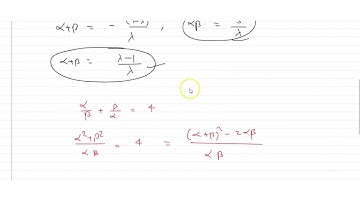 α+β = - (1-λ)/λ , αβ = 5/λ
α+β = λ-1/λ
α/β + β/α = 4
α²+β²/α·β = 4 = (α+β)² - 2αβ/α·β